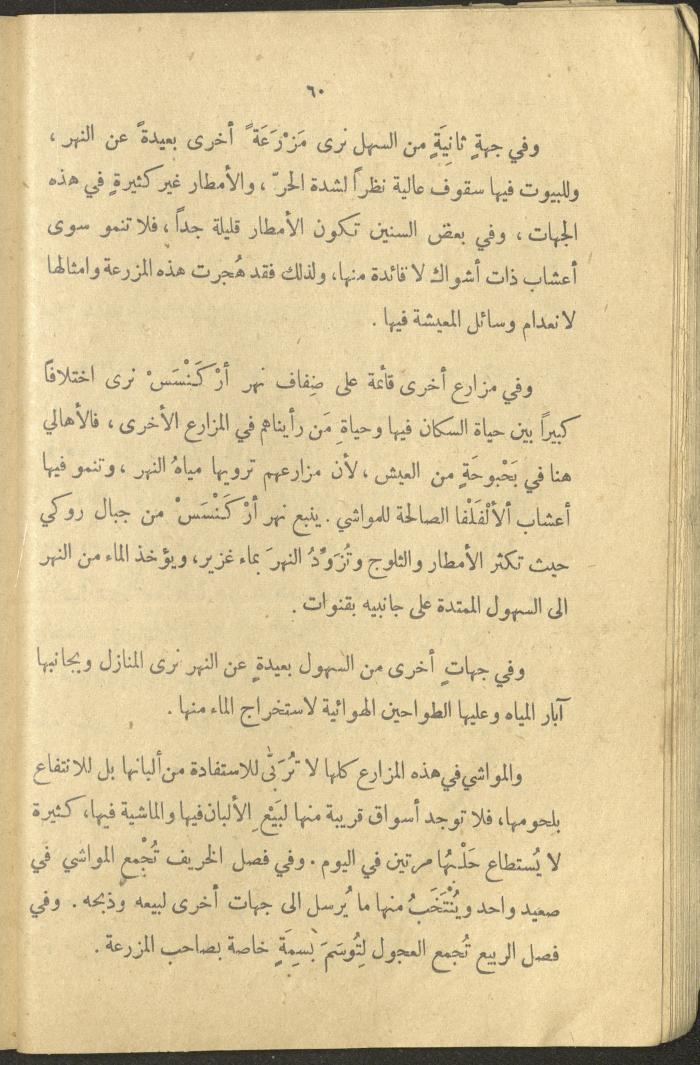 ٦٠
وفي جهةٍ ثانيَةٍ من السهل نرى مَزْرَعَةً أخرى بعيدةً عن النهر ،
وللبيوت فيها سقوف عالية نظراً لشدة الحرّ ، والأمطار غير كثيرةٍ في هذه
الجهات ، وفي بعض السنين تكون الأمطار قليلة جداً ، فلا تنمو سوى
أعشاب ذات أشواك لا فائدة منها، ولذلك فقد هُجرت هذه المزرعة وامثالها
لانعدام وسائل المعيشة فيها .
وفي مزارع أخرى قائمة على ضِفاف نهر أرْكَنْسَسْ نرى اختلافاً
كبيراً بين حياة السكان فيها وحياةِ مَن رأيناهم في المزارع الأخرى ، فالأهالي
هنا في بَحْبوحَةٍ من العيش ، لأن مزارعهم ترويها مياهُ النهر ، وتنمو فيها
أعشاب ألألْفَلْفا الصالحة للمواشي . ينبع نهر أرْكَنْسَسْ من جبال روكي
حيث تكثر الأمطار والثلوج وتُزَوِّدُ النهرَ بماء غزير، ويؤخذ الماء من النهر
الى السهول الممتدة على جانبيه بقنوات .
وفي جهاتٍ أخرى من السهول بعيدةٍ عن النهر نرى المنازل وبجانبها
آبار المياه وعليها الطواحين الهوائية لاستخراج الماء منها .
والمواشي في هذه المزارع كلها لا تُرَبَّى للاستفادة من ألبانها بل للانتفاع
بلحومها، فلا توجد أسواق قريبة منها لبَيْعِ الألبان فيها والماشية فيها، كثيرة
لا يُستطاع حَلْبُها مرتين في اليوم . وفي فصل الخريف تُجْمع المواشي في
صعيد واحد ويُنْتَخَبُ منها ما يُرسل الى جهات أخرى لبيعه وذبحه . وفي
فصل الربيع تُجمع العجول لِتُوسَمَ بسِمَةٍ خاصة بصاحب المزرعة .